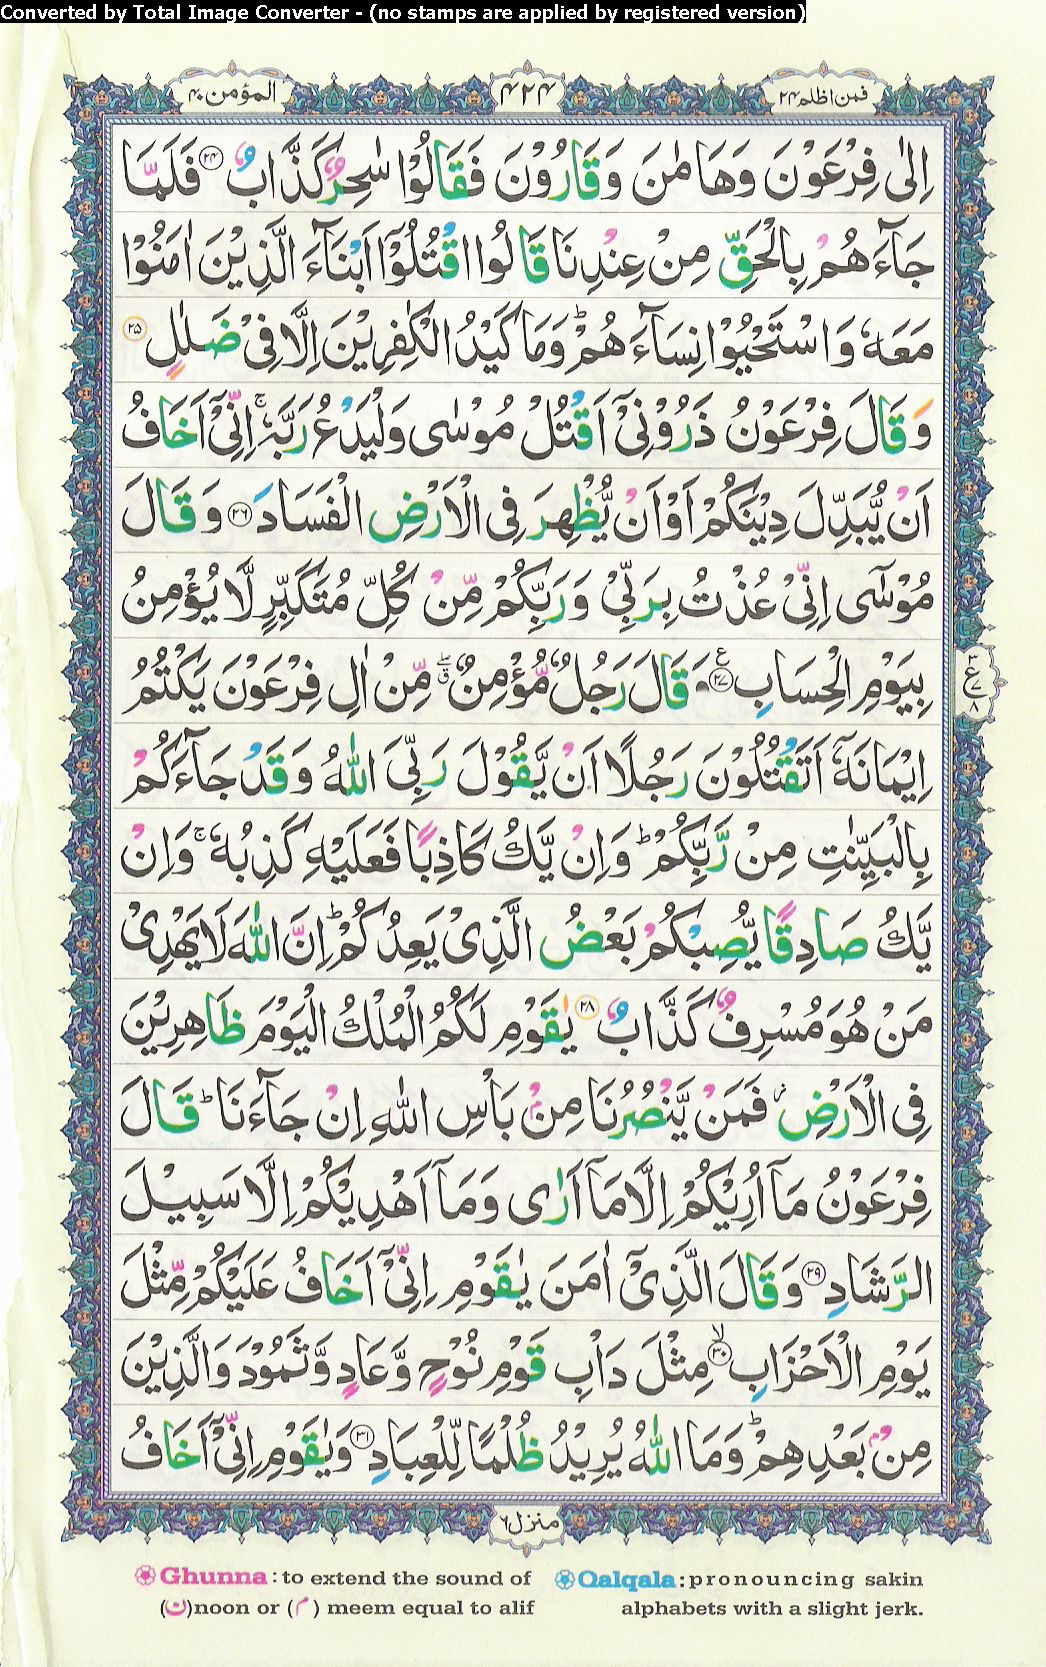 Converted by Total Image Converter - (no stamps are applied by registered version)
فمن اظلم ۲۴
۴۲۴
المؤمن ۴۰
اِلٰى فِرْعَوْنَ وَهَامٰنَ وَقَارُوْنَ فَقَالُوْا سٰحِرٌ كَذَّابٌ ﴿۲۴﴾ فَلَمَّا
جَآءَهُمْ بِالْحَقِّ مِنْ عِنْدِنَا قَالُوا اقْتُلُوْٓا اَبْنَآءَ الَّذِيْنَ اٰمَنُوْا
مَعَهٗ وَاسْتَحْيُوْا نِسَآءَهُمْ ؕ وَمَا كَيْدُ الْكٰفِرِيْنَ اِلَّا فِيْ ضَلٰلٍ ﴿۲۵﴾
وَقَالَ فِرْعَوْنُ ذَرُوْنِيْٓ اَقْتُلْ مُوْسٰى وَلْيَدْعُ رَبَّهٗ ۚ اِنِّيْٓ اَخَافُ
اَنْ يُّبَدِّلَ دِيْنَكُمْ اَوْ اَنْ يُّظْهِرَ فِي الْاَرْضِ الْفَسَادَ ﴿۲۶﴾ وَقَالَ
مُوْسٰٓى اِنِّيْ عُذْتُ بِرَبِّيْ وَرَبِّكُمْ مِّنْ كُلِّ مُتَكَبِّرٍ لَّا يُؤْمِنُ
بِيَوْمِ الْحِسَابِ ﴿۲۷﴾ وَقَالَ رَجُلٌ مُّؤْمِنٌ ۖق مِّنْ اٰلِ فِرْعَوْنَ يَكْتُمُ
۳ ع ۷ ۸
اِيْمَانَهٗٓ اَتَقْتُلُوْنَ رَجُلًا اَنْ يَّقُوْلَ رَبِّيَ اللّٰهُ وَقَدْ جَآءَكُمْ
بِالْبَيِّنٰتِ مِنْ رَّبِّكُمْ ؕ وَاِنْ يَّكُ كَاذِبًا فَعَلَيْهِ كَذِبُهٗ ۚ وَاِنْ
يَّكُ صَادِقًا يُّصِبْكُمْ بَعْضُ الَّذِيْ يَعِدُكُمْ ؕ اِنَّ اللّٰهَ لَا يَهْدِيْ
مَنْ هُوَ مُسْرِفٌ كَذَّابٌ ﴿۲۸﴾ يٰقَوْمِ لَكُمُ الْمُلْكُ الْيَوْمَ ظَاهِرِيْنَ
فِي الْاَرْضِ ؗ فَمَنْ يَّنْصُرُنَا مِنْۢ بَاْسِ اللّٰهِ اِنْ جَآءَنَا ؕ قَالَ
فِرْعَوْنُ مَآ اُرِيْكُمْ اِلَّا مَآ اَرٰى وَمَآ اَهْدِيْكُمْ اِلَّا سَبِيْلَ
الرَّشَادِ ﴿۲۹﴾ وَقَالَ الَّذِيْٓ اٰمَنَ يٰقَوْمِ اِنِّيْٓ اَخَافُ عَلَيْكُمْ مِّثْلَ
يَوْمِ الْاَحْزَابِ ۙ﴿۳۰﴾ مِثْلَ دَاْبِ قَوْمِ نُوْحٍ وَّعَادٍ وَّثَمُوْدَ وَالَّذِيْنَ
مِنْۢ بَعْدِهِمْ ؕ وَمَا اللّٰهُ يُرِيْدُ ظُلْمًا لِّلْعِبَادِ ﴿۳۱﴾ وَيٰقَوْمِ اِنِّيْٓ اَخَافُ
منزل ۶
Ghunna : to extend the sound of (ن)noon or (م) meem equal to alif
Qalqala : pronouncing sakin alphabets with a slight jerk.